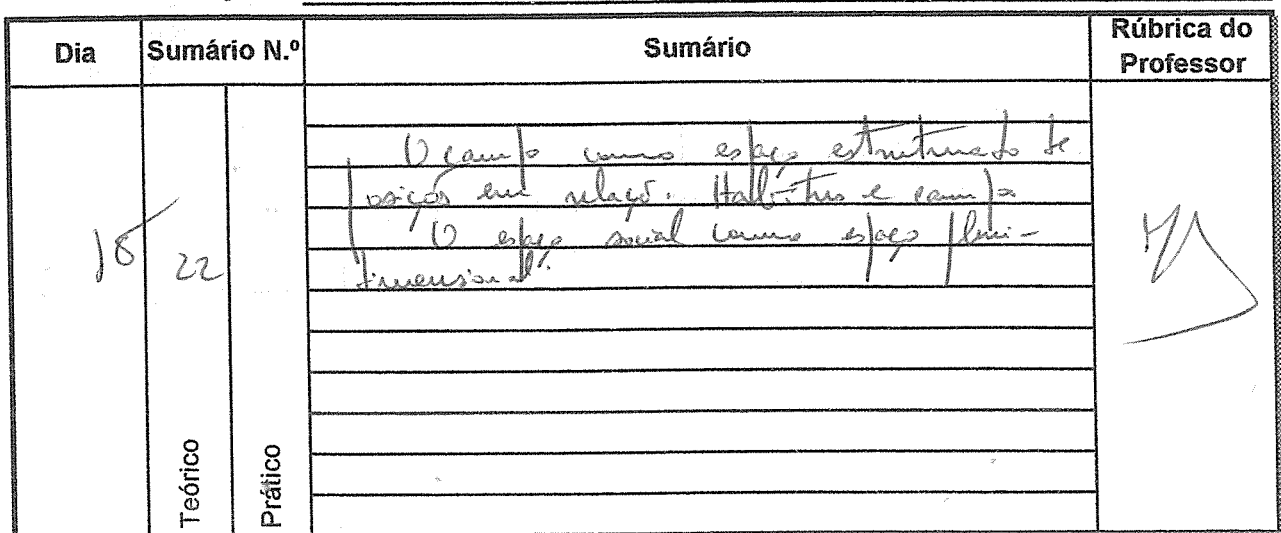 Dia Sumário N.º Sumário Rúbrica do Professor
18 22
O campo como espaço estruturado de
posições em relação. Habitus e campo
O espaço social como espaço pluri-
dimensional.
Teórico Prático